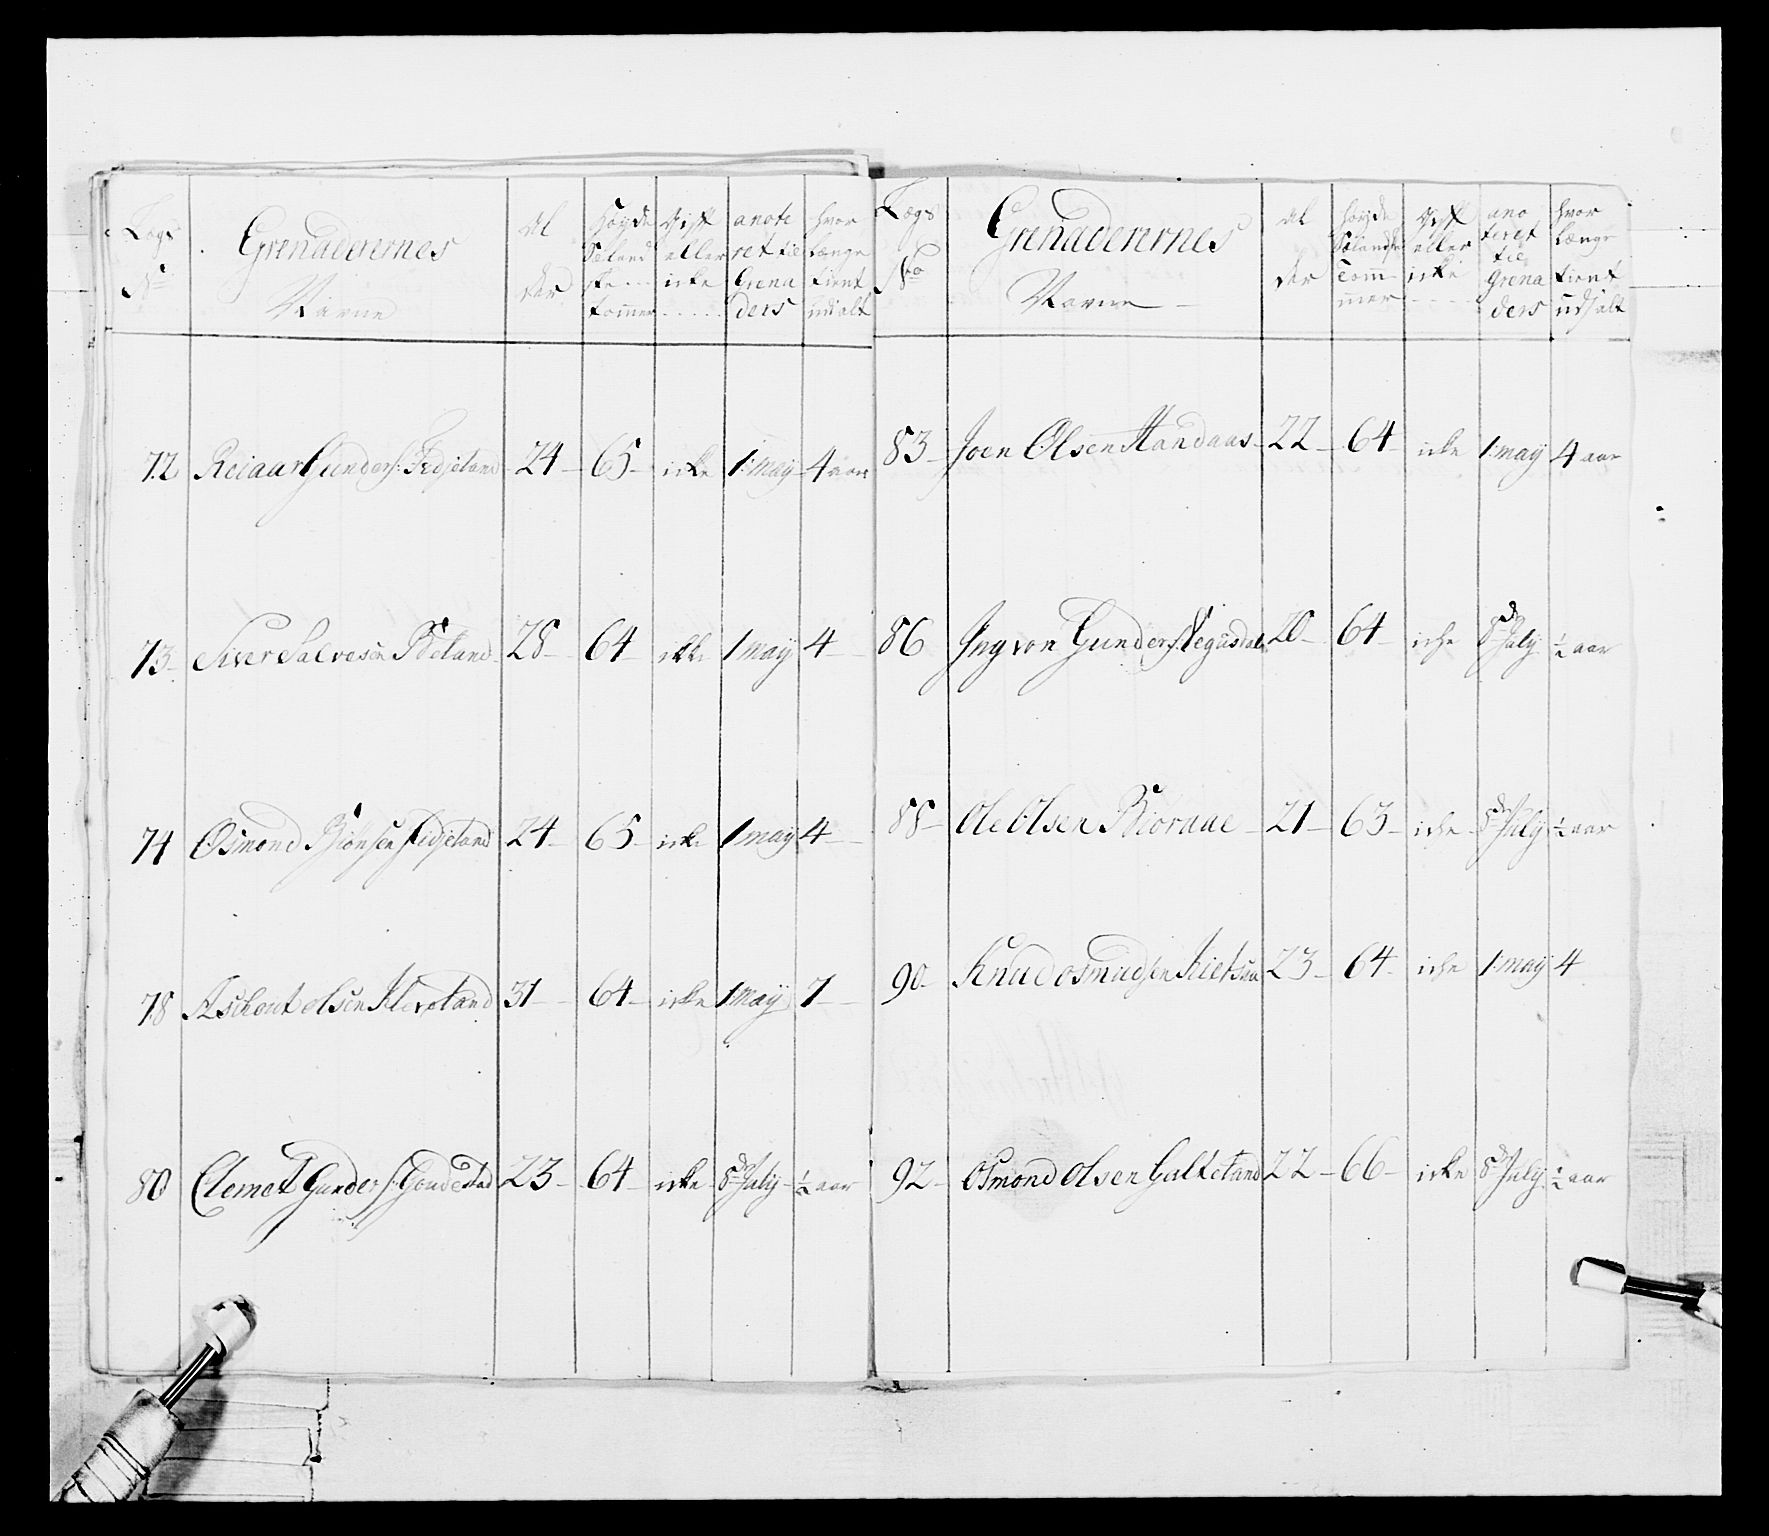 Lægs No
Grenaderernes Navne
Al der
Høyde Sæland ske tommer
Gift eller icke
anote ret til Grena ders
hvor Længe tient udi alt
72 Reiaar Gunders: Fidjeland 24 65 icke 1 may 4 aar
73 Siver Salvesen Røeland 28 64 icke 1 may 4
74 Osmond Biønsen Fidjeland 24 65 icke 1 may 4
78 Aslkout olsen Kleveland 31 64 icke 1 may 7
80 Clemet Gunders: 23 64 icke 8de July ½ aar
Lægs No
Grenaderernes Navne
Al der
høyde Sælandske Tom mer
Gift eller icke
ano teret til Grena ders
hvor Længe tient udj alt
83 Joen Olsen Handaas 22 64 icke 1 may 4 aar
86 Ingvor Gunders: Vegusdal 20 64 icke 8de July ½ aar
88 Ole Olsen 21 63 icke 8de July ½ aar
90 Knud osmudsen 23 64 icke 1 may 4
92 Osmond olsen Galteland 22 66 icke 8de July ½ aar